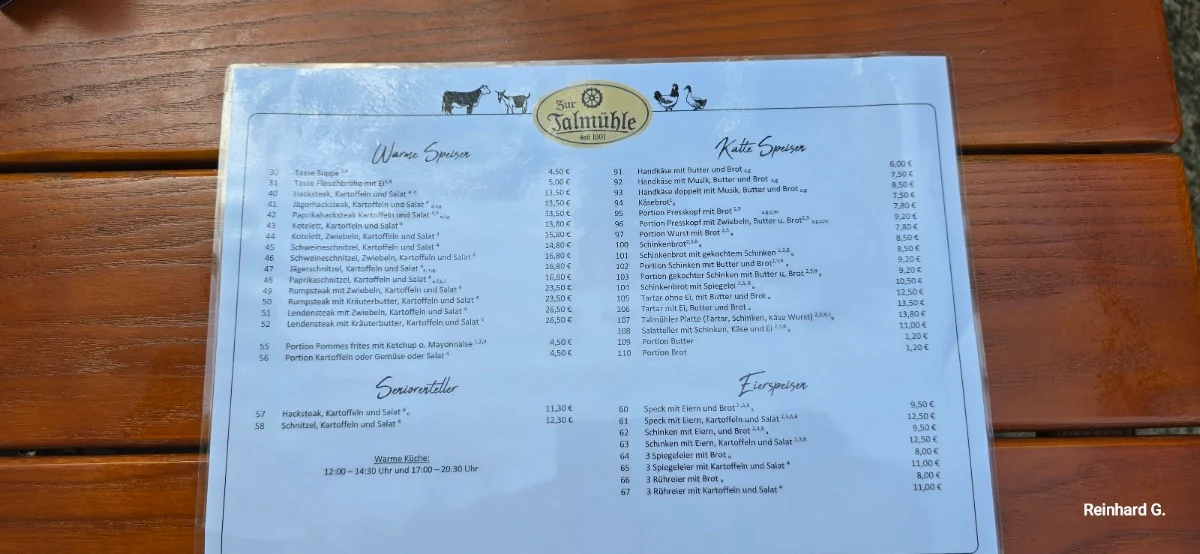 Zur
Talmühle
Seit 1901
Warme Speisen
30 Tasse Suppe 4,50 €
31 Tasse Fleischbrühe mit Ei 5,00 €
40 Hacksteak, Kartoffeln und Salat 13,50 €
41 Jägerhacksteak, Kartoffeln und Salat 13,50 €
42 Paprikahacksteak Kartoffeln und Salat 13,50 €
43 Kotelett, Kartoffeln und Salat ⁴ 13,80 €
44 Kotelett, Zwiebeln, Kartoffeln und Salat ⁴ 15,80 €
45 Schweineschnitzel, Kartoffeln und Salat ⁴ 14,80 €
46 Schweineschnitzel, Zwiebeln, Kartoffeln und Salat ⁴ 16,80 €
47 Jägerschnitzel, Kartoffeln und Salat 16,80 €
48 Paprikaschnitzel, Kartoffeln und Salat 16,80 €
49 Rumpsteak mit Zwiebeln, Kartoffeln und Salat ⁴ 23,50 €
50 Rumpsteak mit Kräuterbutter, Kartoffeln und Salat ⁴ 23,50 €
51 Lendensteak mit Zwiebeln, Kartoffeln und Salat ⁴ 26,50 €
52 Lendensteak mit Kräuterbutter, Kartoffeln und Salat ⁴ 26,50 €
55 Portion Pommes frites mit Ketchup o. Mayonnaise 4,50 €
56 Portion Kartoffeln oder Gemüse oder Salat ⁴ 4,50 €
Seniorenteller
57 Hacksteak, Kartoffeln und Salat ⁴ 11,30 €
58 Schnitzel, Kartoffeln und Salat ⁴ 12,30 €
Warme Küche:
12:00 – 14:30 Uhr und 17:00 – 20:30 Uhr
Kalte Speisen
91 Handkäse mit Butter und Brot 6,00 €
92 Handkäse mit Musik, Butter und Brot 7,50 €
93 Handkäse doppelt mit Musik, Butter und Brot 8,50 €
94 Käsebrot 7,50 €
95 Portion Presskopf mit Brot 7,80 €
96 Portion Presskopf mit Zwiebeln, Butter u. Brot 9,20 €
97 Portion Wurst mit Brot 7,80 €
100 Schinkenbrot 8,50 €
101 Schinkenbrot mit gekochtem Schinken 8,50 €
102 Portion Schinken mit Butter und Brot 9,20 €
103 Portion gekochter Schinken mit Butter u. Brot 9,20 €
104 Schinkenbrot mit Spiegelei 10,50 €
105 Tartar ohne Ei, mit Butter und Brot 12,50 €
106 Tartar mit Ei, Butter und Brot 13,50 €
107 Talmühler Platte (Tartar, Schinken, Käse Wurst) 13,80 €
108 Salatteller mit Schinken, Käse und Ei 11,00 €
109 Portion Butter 1,20 €
110 Portion Brot 1,20 €
Eierspeisen
60 Speck mit Eiern und Brot 9,50 €
61 Speck mit Eiern, Kartoffeln und Salat 12,50 €
62 Schinken mit Eiern, und Brot 9,50 €
63 Schinken mit Eiern, Kartoffeln und Salat 12,50 €
64 3 Spiegeleier mit Brot 8,00 €
65 3 Spiegeleier mit Kartoffeln und Salat ⁴ 11,00 €
66 3 Rühreier mit Brot 8,00 €
67 3 Rühreier mit Kartoffeln und Salat ⁴ 11,00 €
Reinhard G.